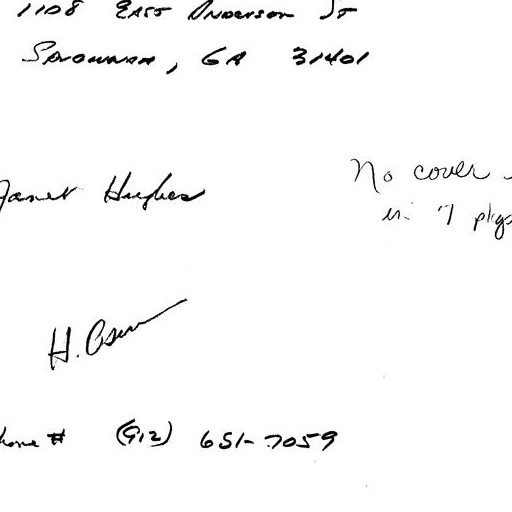 1108 East Anderson St
Savannah, GA 31401
Janet Hughes
No cover
in 7 pkgs
H.
Phone # (912) 651-7059